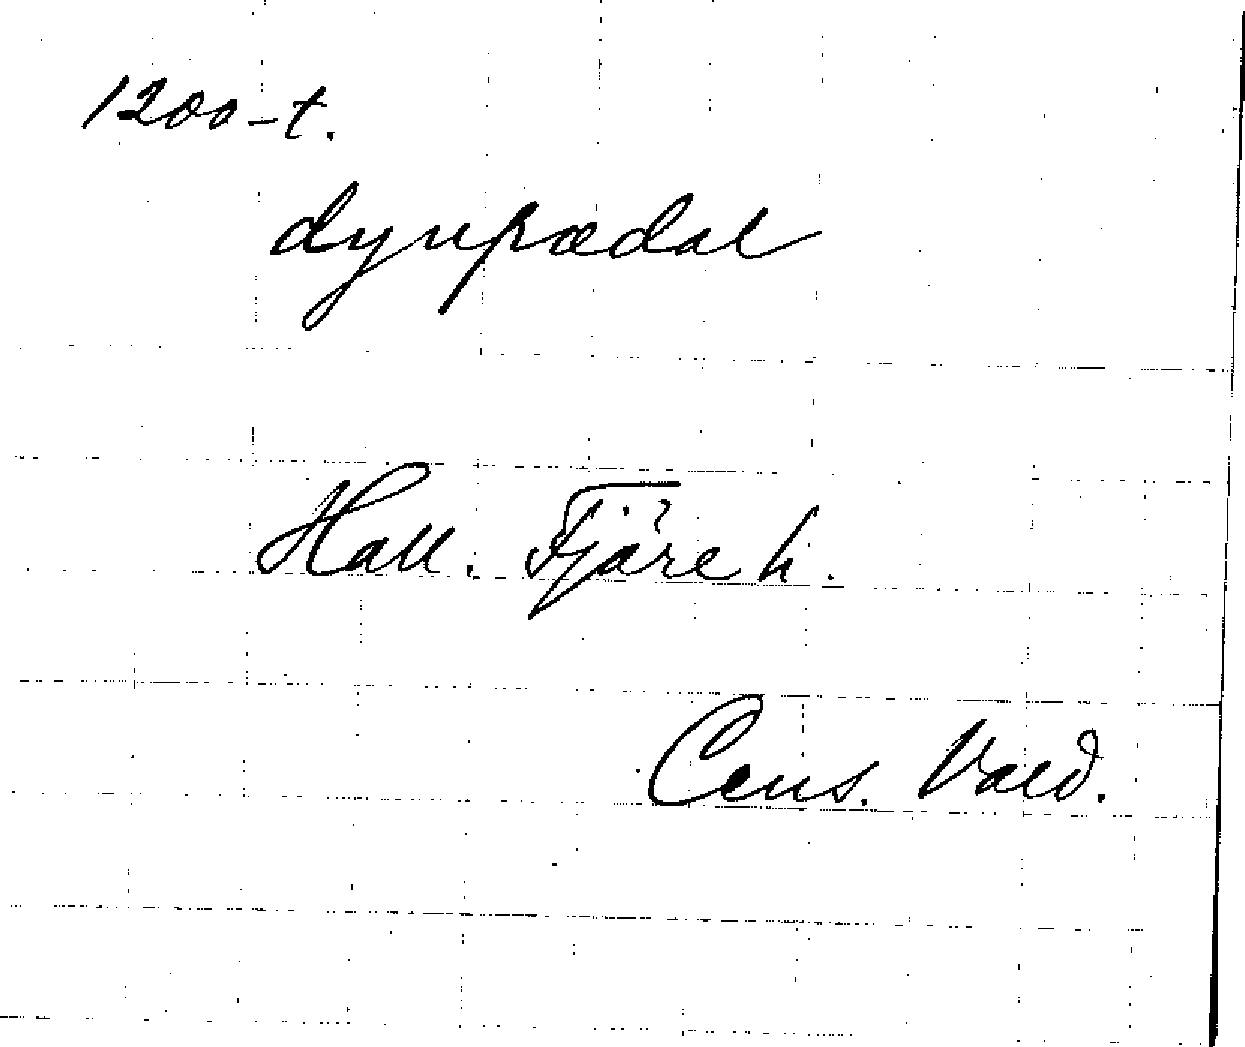 1200-t.
dyupædal
Hall. Fjäre h.
Cens. Vald.